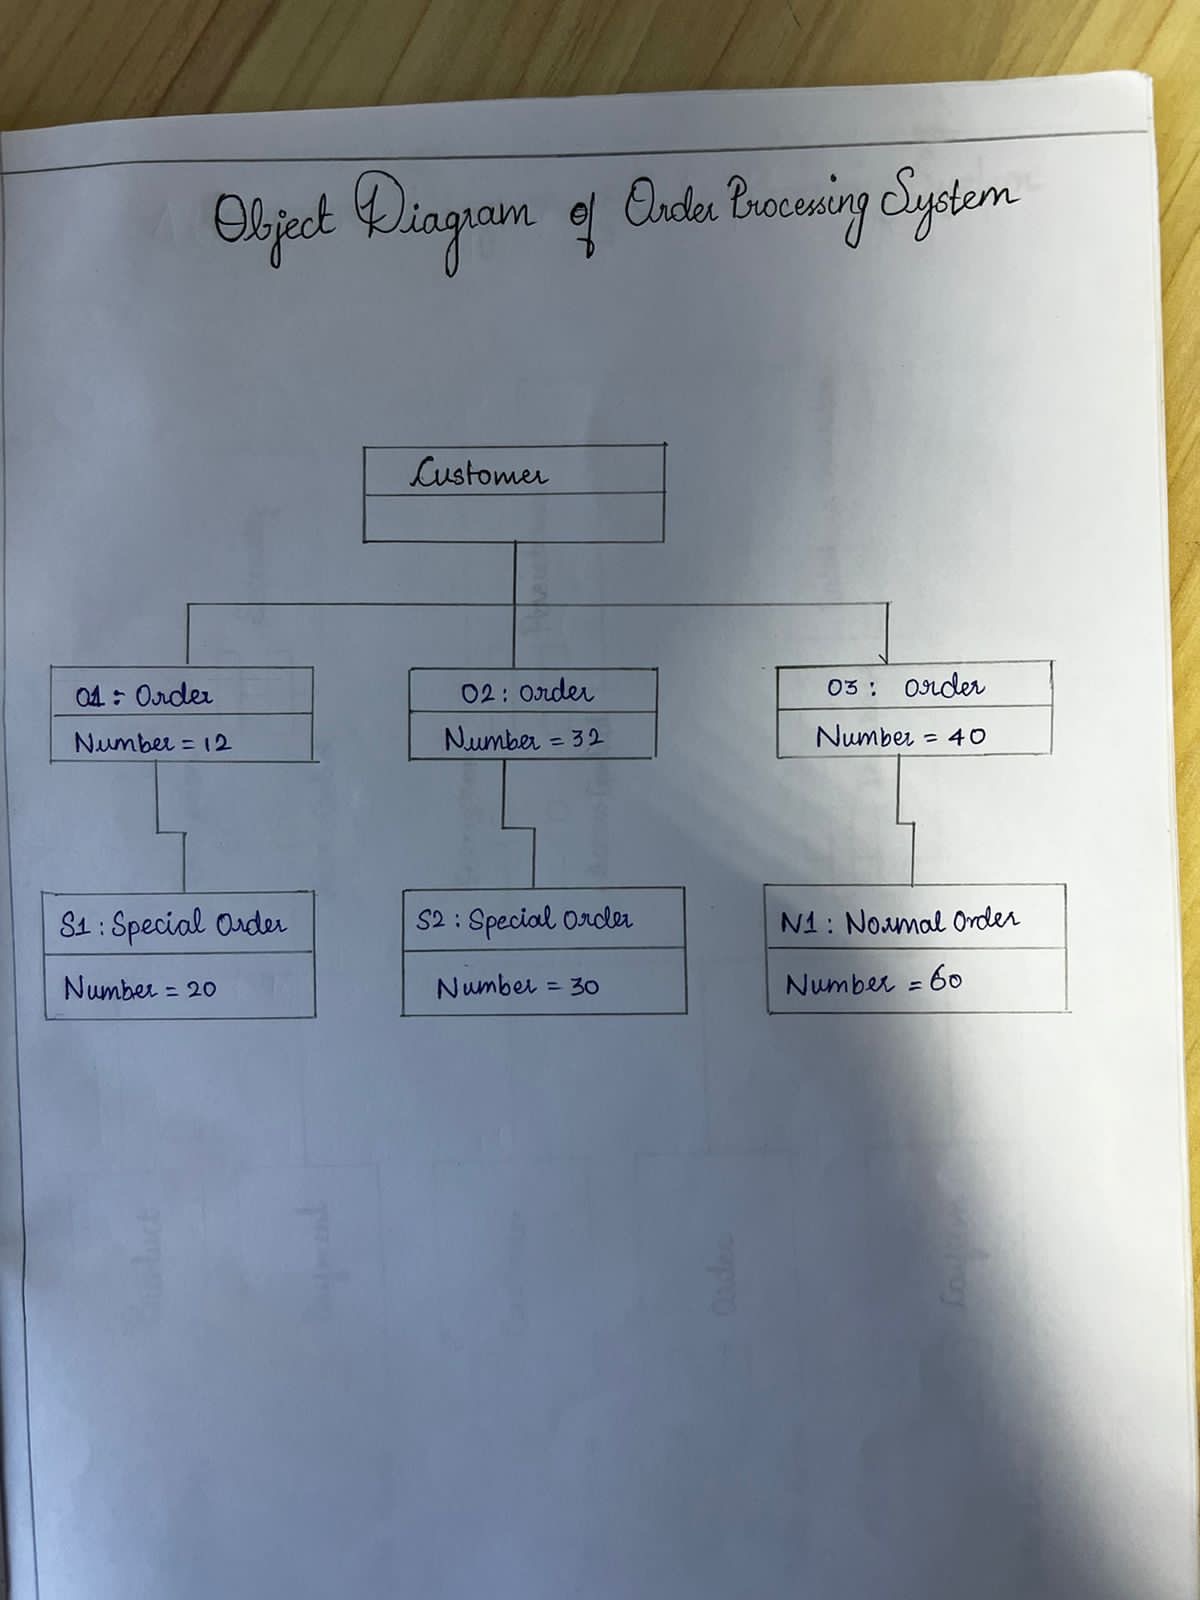 Object Diagram of Order Processing System
Customer
O1: Order
Number = 12
O2: Order
Number = 32
O3: Order
Number = 40
S1: Special Order
Number = 20
S2: Special Order
Number = 30
N1: Normal Order
Number = 60